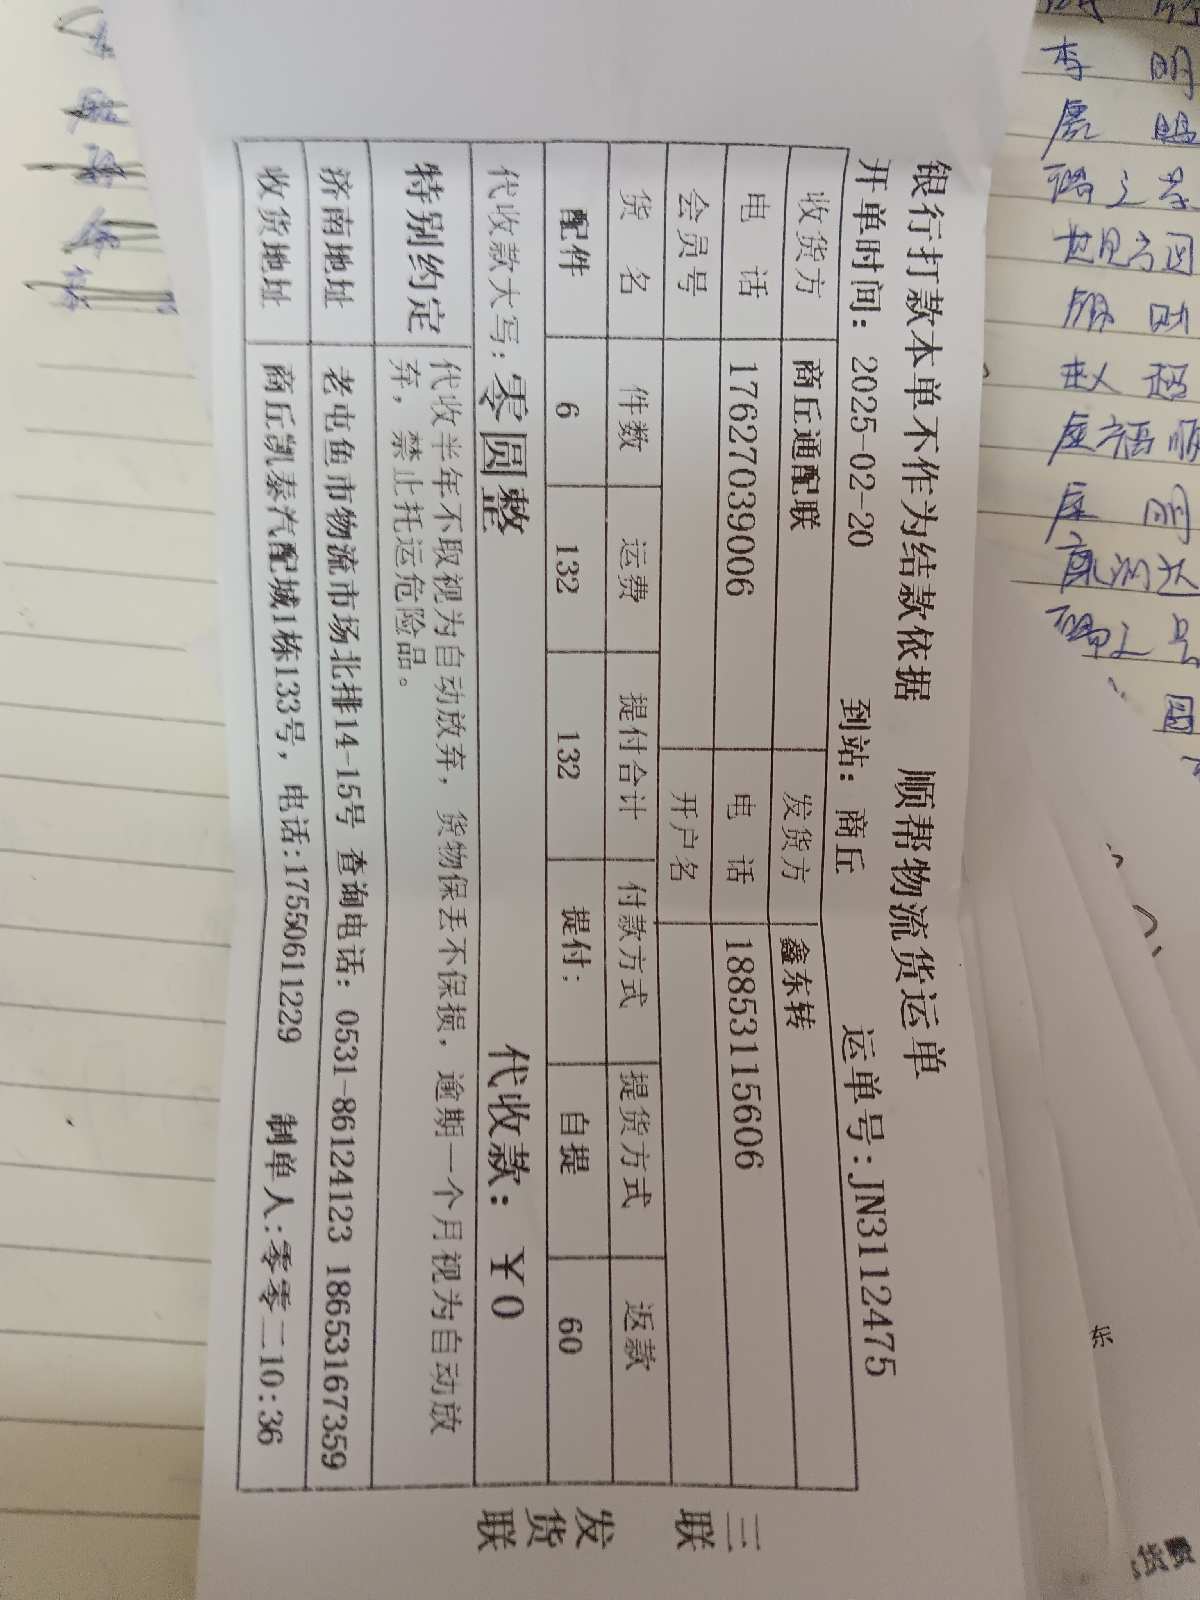 银行打款本单不作为结款依据 顺帮物流货运单
开单时间: 2025-02-20 到站: 商丘 运单号:JN3112475
收货方 商丘通配联 发货方 鑫东转
电 话 17627039006 电 话 18853115606
会员号 开户名
货 名 件数 运费 提付合计 付款方式 提货方式 返款
配件 6 132 132 提付: 自提 60
代收款大写: 零圆整 代收款: ￥0
特别约定 代收半年不取视为自动放弃, 货物保丢不保损, 逾期一个月视为自动放
弃, 禁止托运危险品。
济南地址 老屯鱼市物流市场北排14-15号 查询电话: 0531-86124123 18653167359
收货地址 商丘凯泰汽配城1栋133号, 电话:17550611229 制单人:零零二10:36
三联
发货联
东
货费